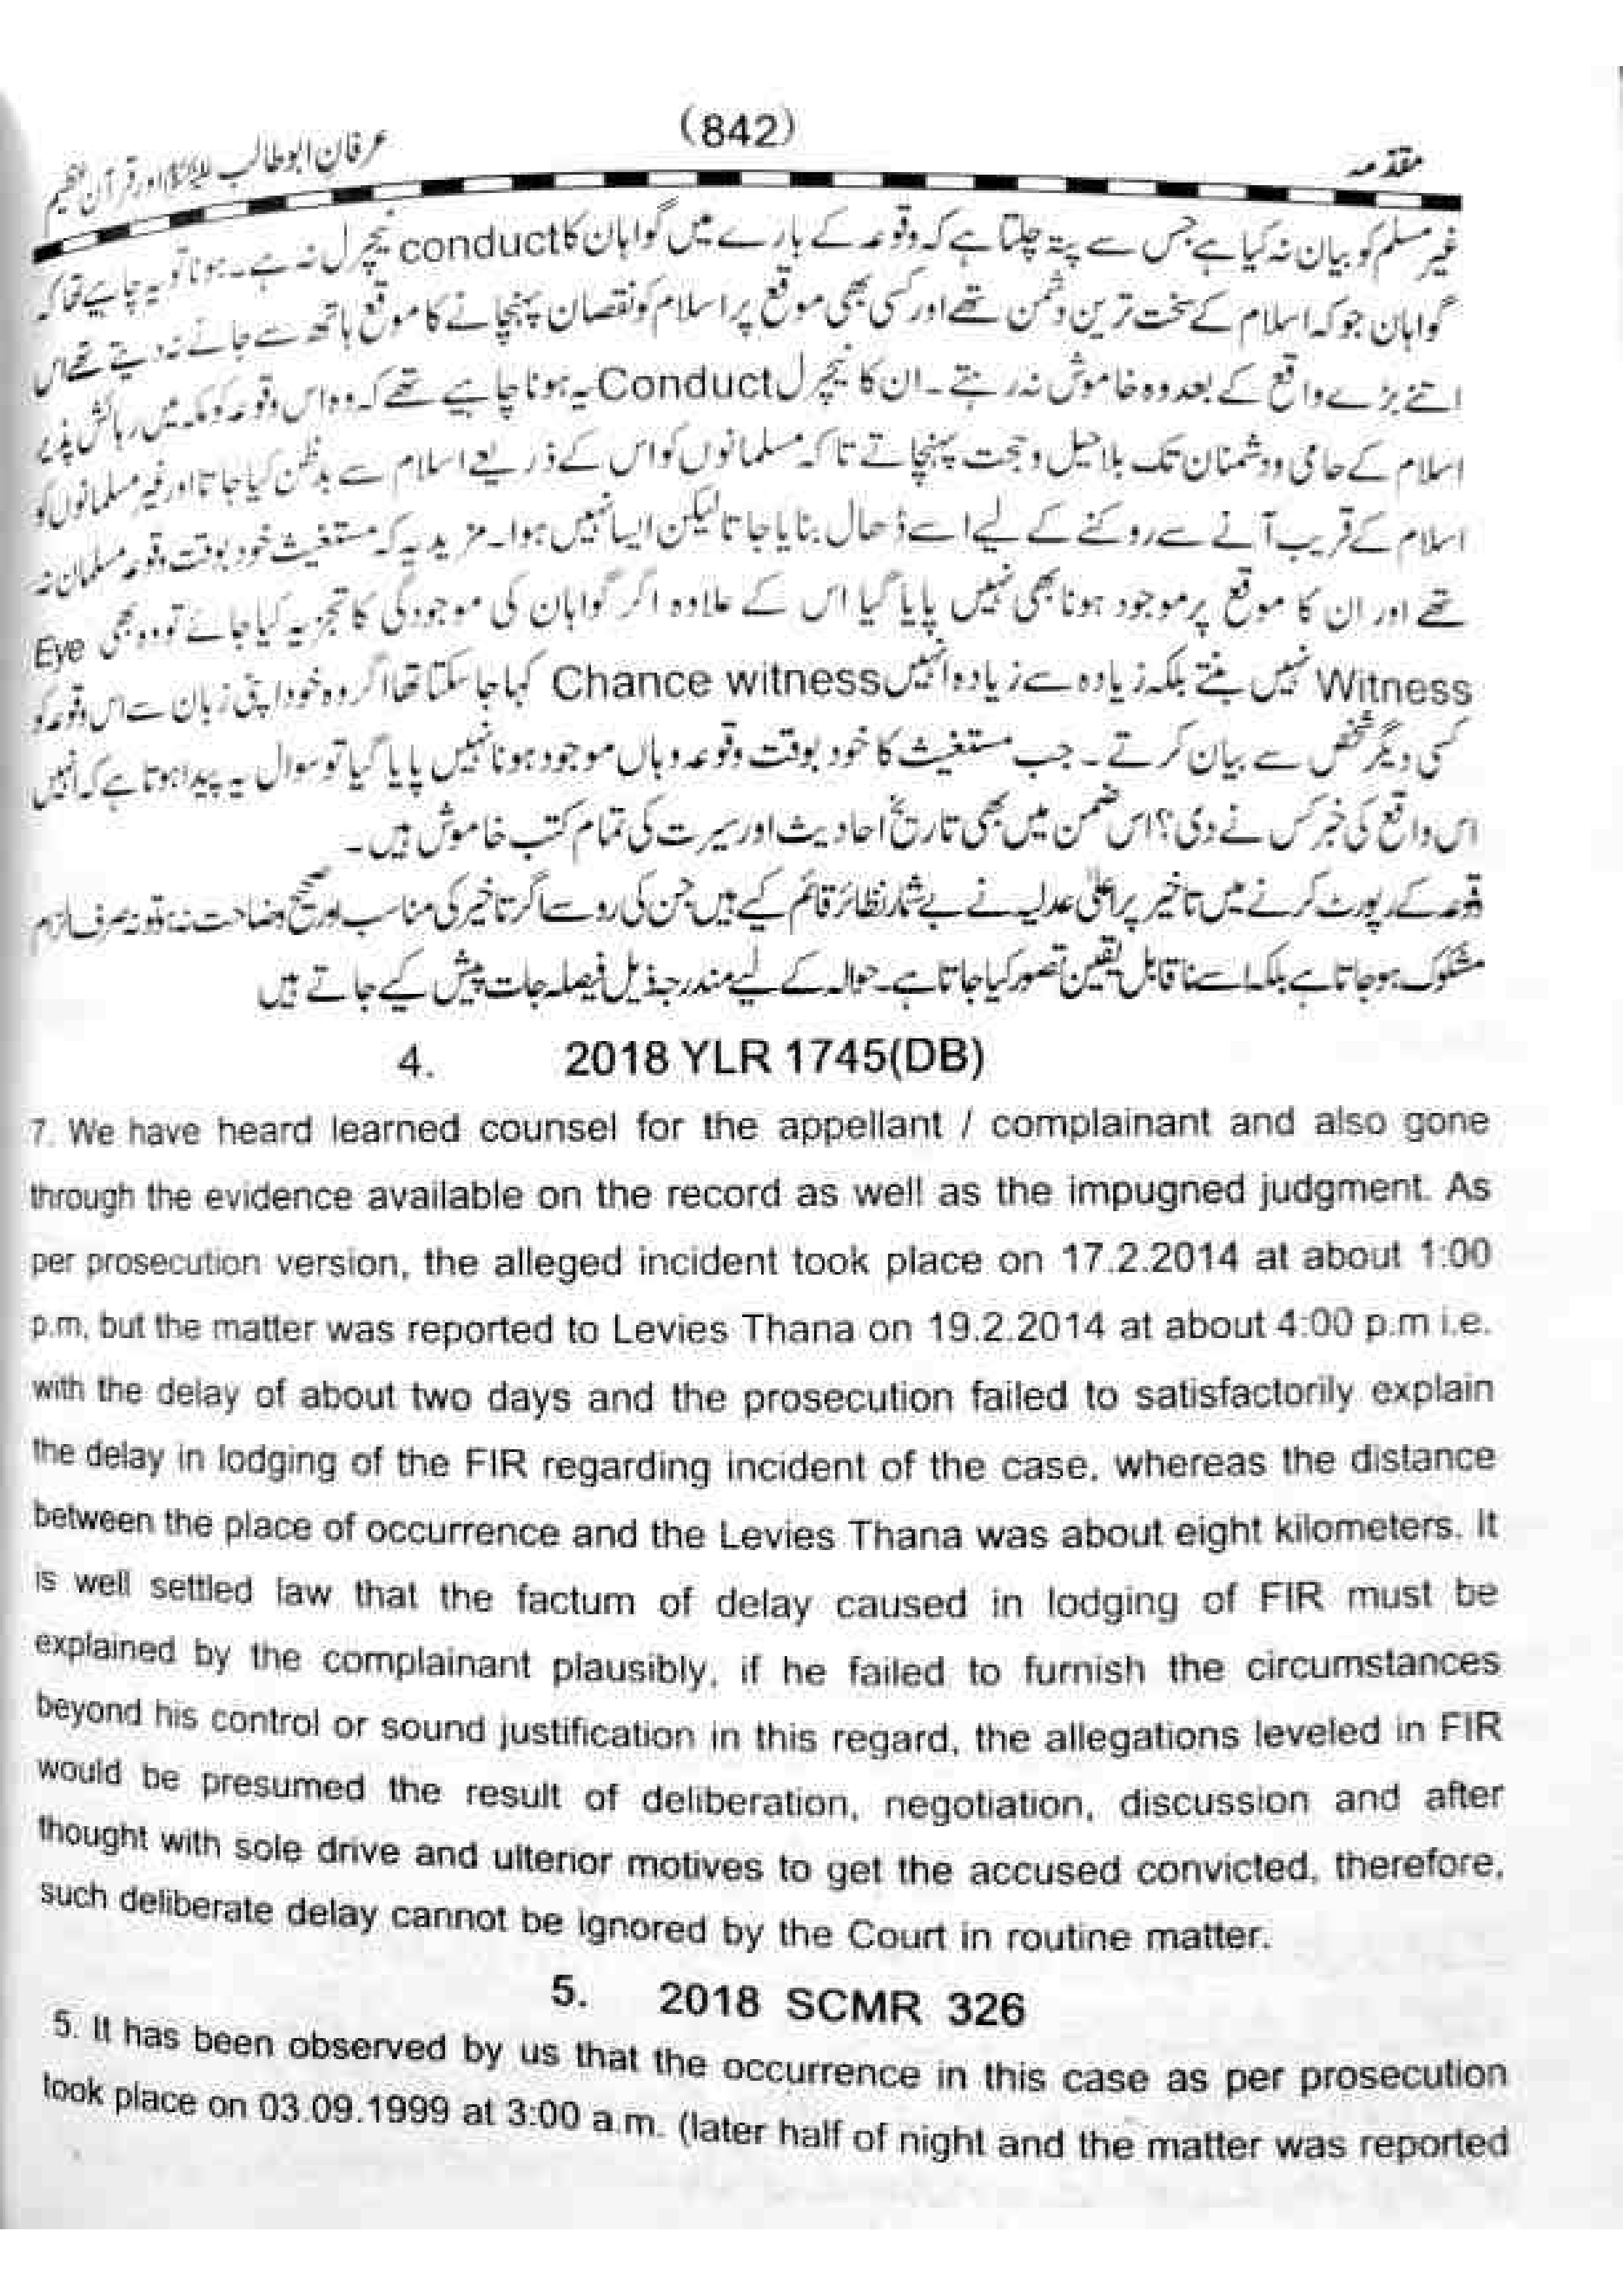 (842)
مقدمہ
عرفان ابو طالب علیہ السلام اور قرآن عظیم
غیر مسلم کو بیان نہ کیا ہے جس سے پتہ چلتا ہے کہ وقوعہ کے بارے میں گواہان کا conduct نیچرل نہ ہے۔ ہونا تو یہ چاہیے تھا کہ
گواہان جو کہ اسلام کے سخت ترین دشمن تھے اور کسی بھی موقع پر اسلام کو نقصان پہنچانے کا موقع ہاتھ سے جانے نہ دیتے تھے اس
اتنے بڑے واقع کے بعد وہ خاموش نہ رہتے۔ ان کا نیچرل Conduct یہ ہونا چاہیے تھے کہ وہ اس وقوعہ کو مکہ میں رہائش پذیر
اسلام کے حامی و دشمنان تک بلا حیل و حجت پہنچاتے تا کہ مسلمانوں کو اس کے ذریعے اسلام سے بدظن کیا جاتا اور غیر مسلمانوں کو
اسلام کے قریب آنے سے روکنے کے لیے اسے ڈھال بنایا جاتا لیکن ایسا نہیں ہوا۔ مزید یہ کہ مستغیث خود بوقت وقوعہ مسلمان نہ
تھے اور ان کا موقع پر موجود ہونا بھی نہیں پایا گیا اس کے علاوہ اگر گواہان کی موجودگی کا تجزیہ کیا جائے تو وہ بھی Eye
Witness نہیں بنتے بلکہ زیادہ سے زیادہ انہیں Chance witness کہا جا سکتا تھا اگر وہ خود اپنی زبان سے اس وقوعہ کو
کسی دیگر شخص سے بیان کرتے۔ جب مستغیث کا خود بوقت وقوعہ وہاں موجود ہونا نہیں پایا گیا تو سوال یہ پیدا ہوتا ہے کہ انہیں
اس واقع کی خبر کس نے دی؟ اس ضمن میں بھی تاریخ احادیث اور سیرت کی تمام کتب خاموش ہیں۔
وقوعہ کے رپورٹ کرنے میں تاخیر پر اعلیٰ عدلیہ نے بے شمار نظائر قائم کیے ہیں جن کی رو سے اگر تاخیر کی مناسب اور صحیح وضاحت نہ ہو تو نہ صرف الزام
مشکوک ہو جاتا ہے بلکہ اسے ناقابل یقین تصور کیا جاتا ہے۔ حوالہ کے لیے مندرجہ ذیل فیصلہ جات پیش کیے جاتے ہیں
4. 2018 YLR 1745(DB)
7. We have heard learned counsel for the appellant / complainant and also gone
through the evidence available on the record as well as the impugned judgment. As
per prosecution version, the alleged incident took place on 17.2.2014 at about 1:00
p.m, but the matter was reported to Levies Thana on 19.2.2014 at about 4:00 p.m i.e.
with the delay of about two days and the prosecution failed to satisfactorily explain
the delay in lodging of the FIR regarding incident of the case, whereas the distance
between the place of occurrence and the Levies Thana was about eight kilometers. It
is well settled law that the factum of delay caused in lodging of FIR must be
explained by the complainant plausibly, if he failed to furnish the circumstances
beyond his control or sound justification in this regard, the allegations leveled in FIR
would be presumed the result of deliberation, negotiation, discussion and after
thought with sole drive and ulterior motives to get the accused convicted, therefore,
such deliberate delay cannot be ignored by the Court in routine matter.
5. 2018 SCMR 326
5. It has been observed by us that the occurrence in this case as per prosecution
took place on 03.09.1999 at 3:00 a.m. (later half of night and the matter was reported